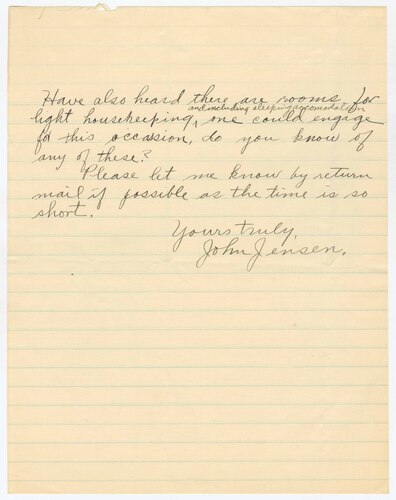 Have also heard there are rooms for
and including sleeping accomodation
light housekeeping, one could engage
for this occasion, do you know of
any of these?
Please let me know by return
mail if possible as the time is so
short.
Yours truly,
John Jensen.